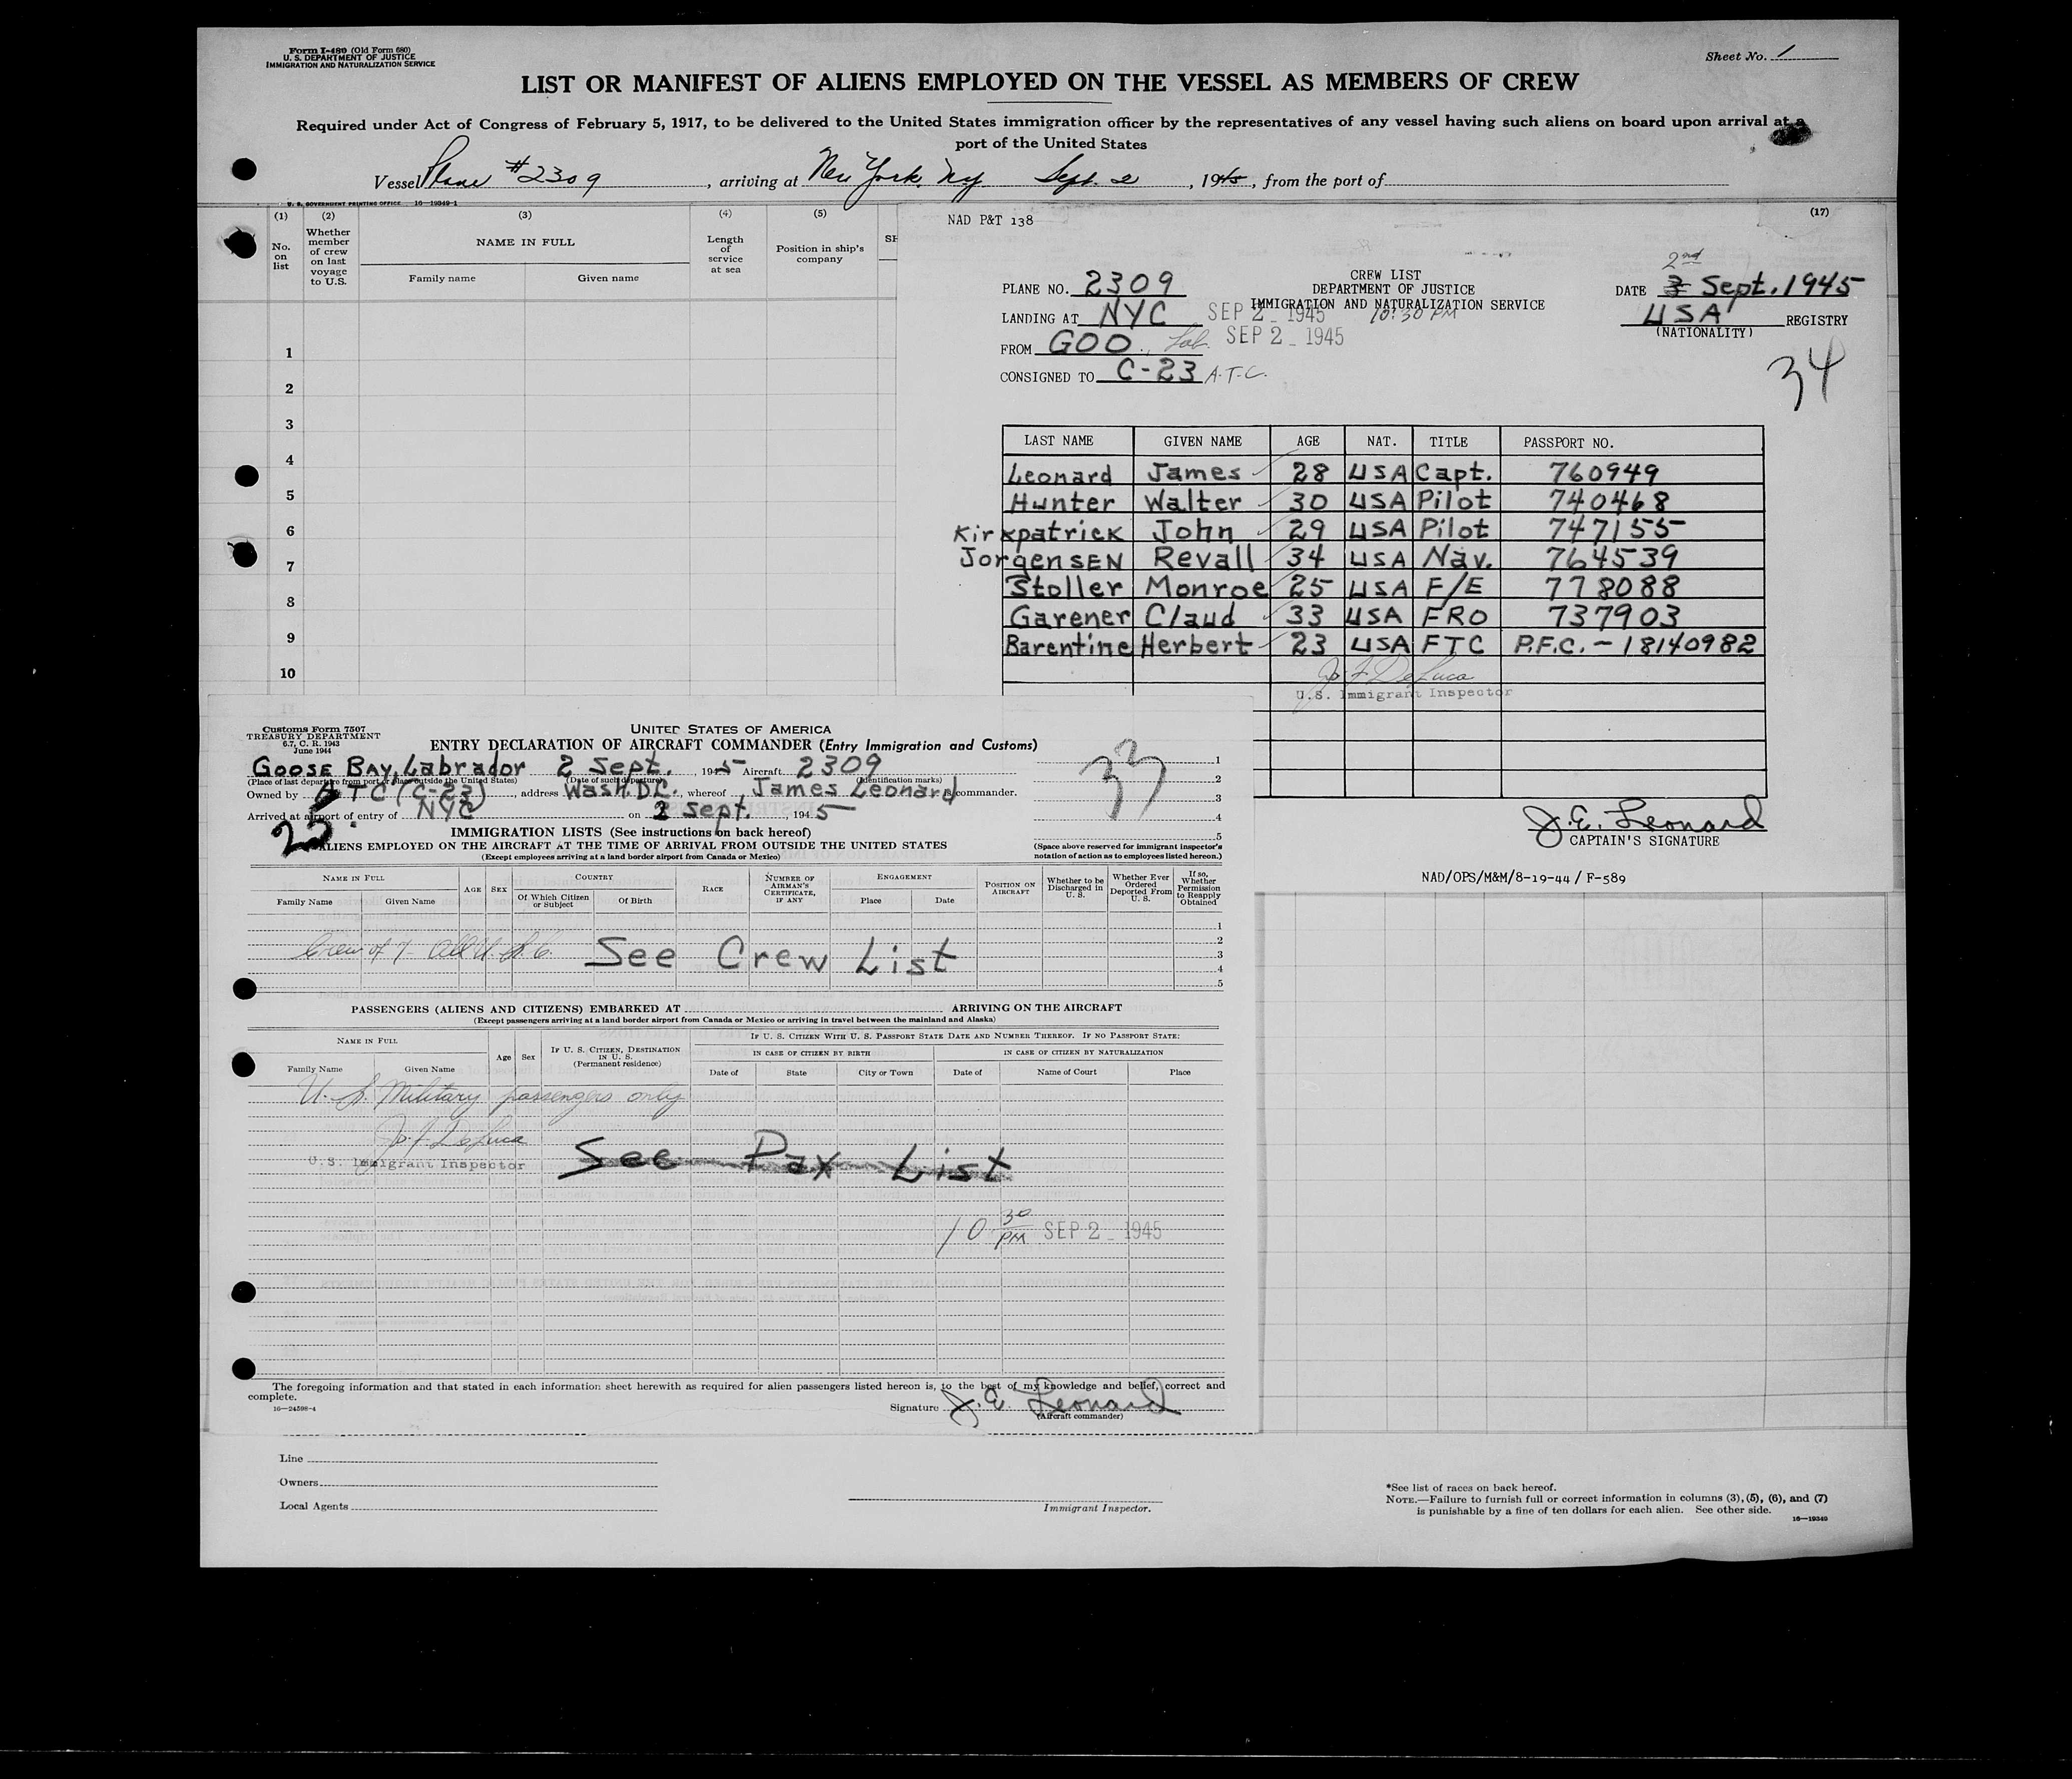 Form I-480 (Old Form 680)
U. S. DEPARTMENT OF JUSTICE
IMMIGRATION AND NATURALIZATION SERVICE
Sheet No. 1
LIST OR MANIFEST OF ALIENS EMPLOYED ON THE VESSEL AS MEMBERS OF CREW
Required under Act of Congress of February 5, 1917, to be delivered to the United States immigration officer by the representatives of any vessel having such aliens on board upon arrival at a
port of the United States
Vessel Plane #2309, arriving at New York, Ny Sept. 2, 1945, from the port of
U. S. GOVERNMENT PRINTING OFFICE 16—19349-1
(1) (2) (3) (4) (5) (17)
No. on list
Whether member of crew on last voyage to U.S.
NAME IN FULL
Family name Given name
Length of service at sea
Position in ship's company
1
2
3
4
5
6
7
8
9
10
11
NAD P&T 138
CREW LIST
DEPARTMENT OF JUSTICE
IMMIGRATION AND NATURALIZATION SERVICE
PLANE NO. 2309
2nd
DATE 3 Sept. 1945
LANDING AT NYC SEP 2 - 1945 10:30 PM
USA REGISTRY
(NATIONALITY)
FROM GOO, Lab. SEP 2 - 1945
CONSIGNED TO C-23 A.T.C.
34
LAST NAME GIVEN NAME AGE NAT. TITLE PASSPORT NO.
Leonard James 28 USA Capt. 760949
Hunter Walter 30 USA Pilot 740468
Kirkpatrick John 29 USA Pilot 747155
JorgenSEN Revall 34 USA Nav. 764539
Stoller Monroe 25 USA F/E 778088
Garener Claud 33 USA FRO 737903
Barentine Herbert 23 USA FTC P.F.C. - 18140982
Jo. F. DeLuca
U.S. Immigrant Inspector
J. E. Leonard
CAPTAIN'S SIGNATURE
NAD/OPS/M&M/8-19-44 / F-589
Customs Form 7507
TREASURY DEPARTMENT
6.7, C. R. 1943
June 1944
UNITED STATES OF AMERICA
ENTRY DECLARATION OF AIRCRAFT COMMANDER (Entry Immigration and Customs)
Goose Bay, Labrador 2 Sept., 1945 Aircraft 2309
(Place of last departure from port or place outside the United States) (Date of such departure) (Identification marks)
Owned by ATC (C-23), address Wash. D.C., whereof James Leonard is commander.
Arrived at airport of entry of NYC on 2 Sept., 1945
33
1
2
3
4
5
(Space above reserved for immigrant inspector's notation of action as to employees listed hereon.)
25
IMMIGRATION LISTS (See instructions on back hereof)
ALIENS EMPLOYED ON THE AIRCRAFT AT THE TIME OF ARRIVAL FROM OUTSIDE THE UNITED STATES
(Except employees arriving at a land border airport from Canada or Mexico)
NAME IN FULL
Family Name Given Name
AGE SEX
COUNTRY
Of Which Citizen or Subject Of Birth
RACE
NUMBER OF AIRMAN'S CERTIFICATE, IF ANY
ENGAGEMENT
Place Date
POSITION ON AIRCRAFT
Whether to be Discharged in U. S.
Whether Ever Ordered Deported From U. S.
If so, Whether Permission to Reapply Obtained
1
2
3
4
5
Crew of 7 - All U.S.C. See Crew List
PASSENGERS (ALIENS AND CITIZENS) EMBARKED AT ARRIVING ON THE AIRCRAFT
(Except passengers arriving at a land border airport from Canada or Mexico or arriving in travel between the mainland and Alaska)
NAME IN FULL
Family Name Given Name
Age Sex
IF U. S. CITIZEN, DESTINATION IN U. S. (Permanent residence)
IF U. S. CITIZEN WITH U. S. PASSPORT STATE DATE AND NUMBER THEREOF. IF NO PASSPORT STATE:
IN CASE OF CITIZEN BY BIRTH IN CASE OF CITIZEN BY NATURALIZATION
Date of State City or Town Date of Name of Court Place
U. S. Military passengers only
Jo. F. DeLuca
U.S. Immigrant Inspector
See Pax List
10 30 PM SEP 2 - 1945
The foregoing information and that stated in each information sheet herewith as required for alien passengers listed hereon is, to the best of my knowledge and belief, correct and
complete.
16—24598-4
Signature J. E. Leonard
(Aircraft commander)
Line
Owners
Local Agents
Immigrant Inspector.
*See list of races on back hereof.
NOTE.—Failure to furnish full or correct information in columns (3), (5), (6), and (7)
is punishable by a fine of ten dollars for each alien. See other side.
16—19349